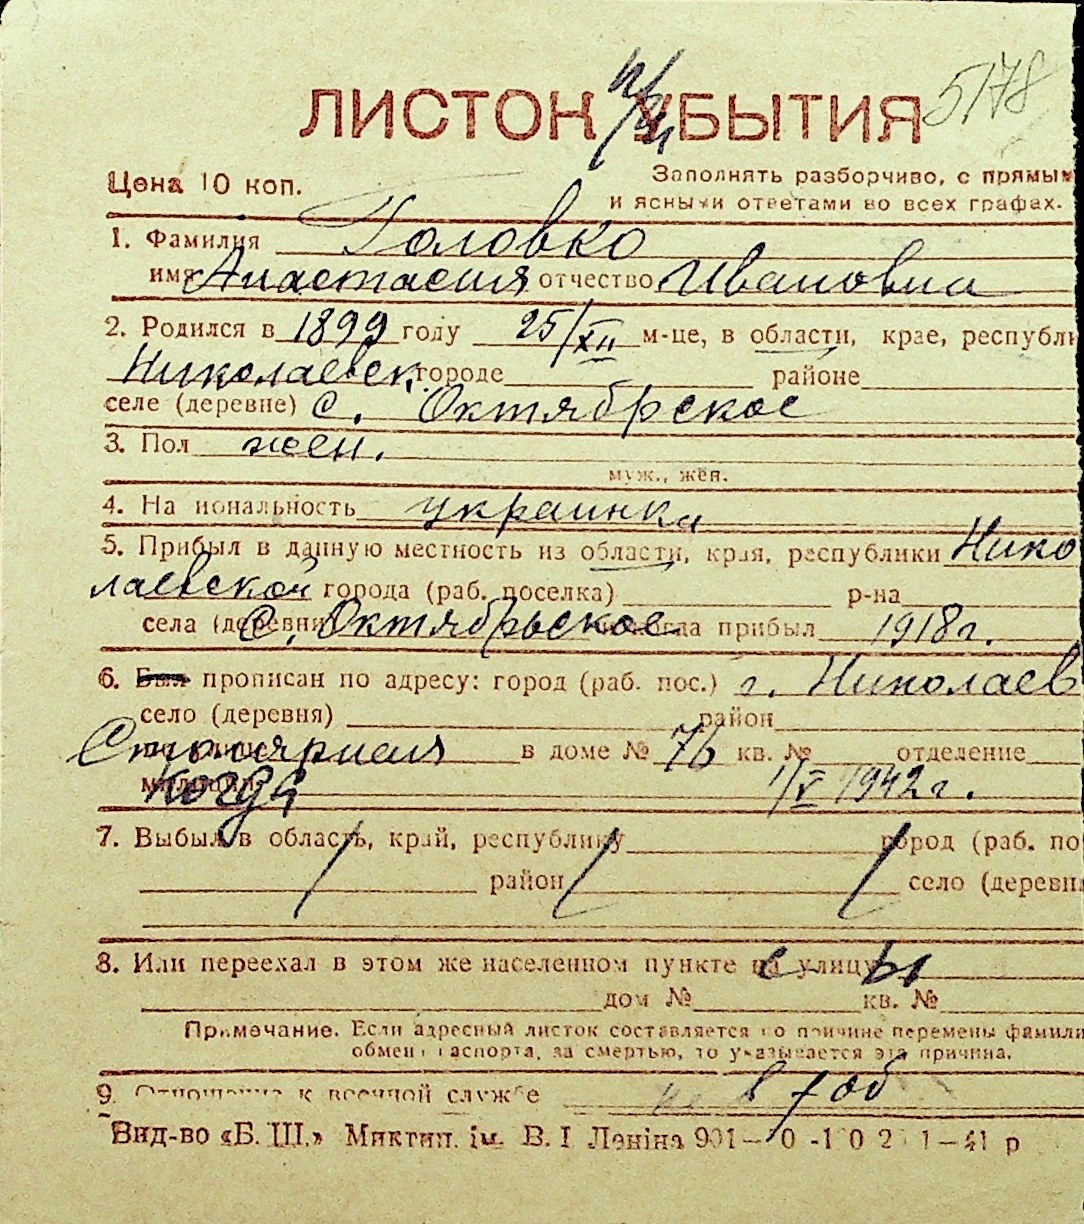 5178
ЛИСТОК УБЫТИЯ
Цена 10 коп.
Заполнять разборчиво, с прямым
и ясными ответами во всех графах.
1. Фамилия Головко
имя Анастасия отчество Ивановна
2. Родился в 1899 году 25/XII м-це, в области, крае, республи
Николаевск. городе районе
селе (деревне) с. Октябрское
3. Пол жен.
муж., жен.
4. Национальность украинка
5. Прибыл в данную местность из области, края, республики Нико
лаевской города (раб. поселка) р-на
села (деревни) с. Октябрьское когда прибыл 1918 г.
6. Был прописан по адресу: город (раб. пос.) г. Николаев
село (деревня) район
по улице Столярная в доме № 76 кв. № отделение
милиции когда 1/V 1942 г.
7. Выбыл в область, край, республику город (раб. по
район село (деревн
8. Или переехал в этом же населенном пункте на улицу
дом № кв. №
Примечание. Если адресный листок составляется по причине перемены фамили
обмен паспорта, за смертью, то указывается эта причина.
9. Отношение к военной службе
Вид-во «Б. Ш.» Миктип. ім. В. І Леніна